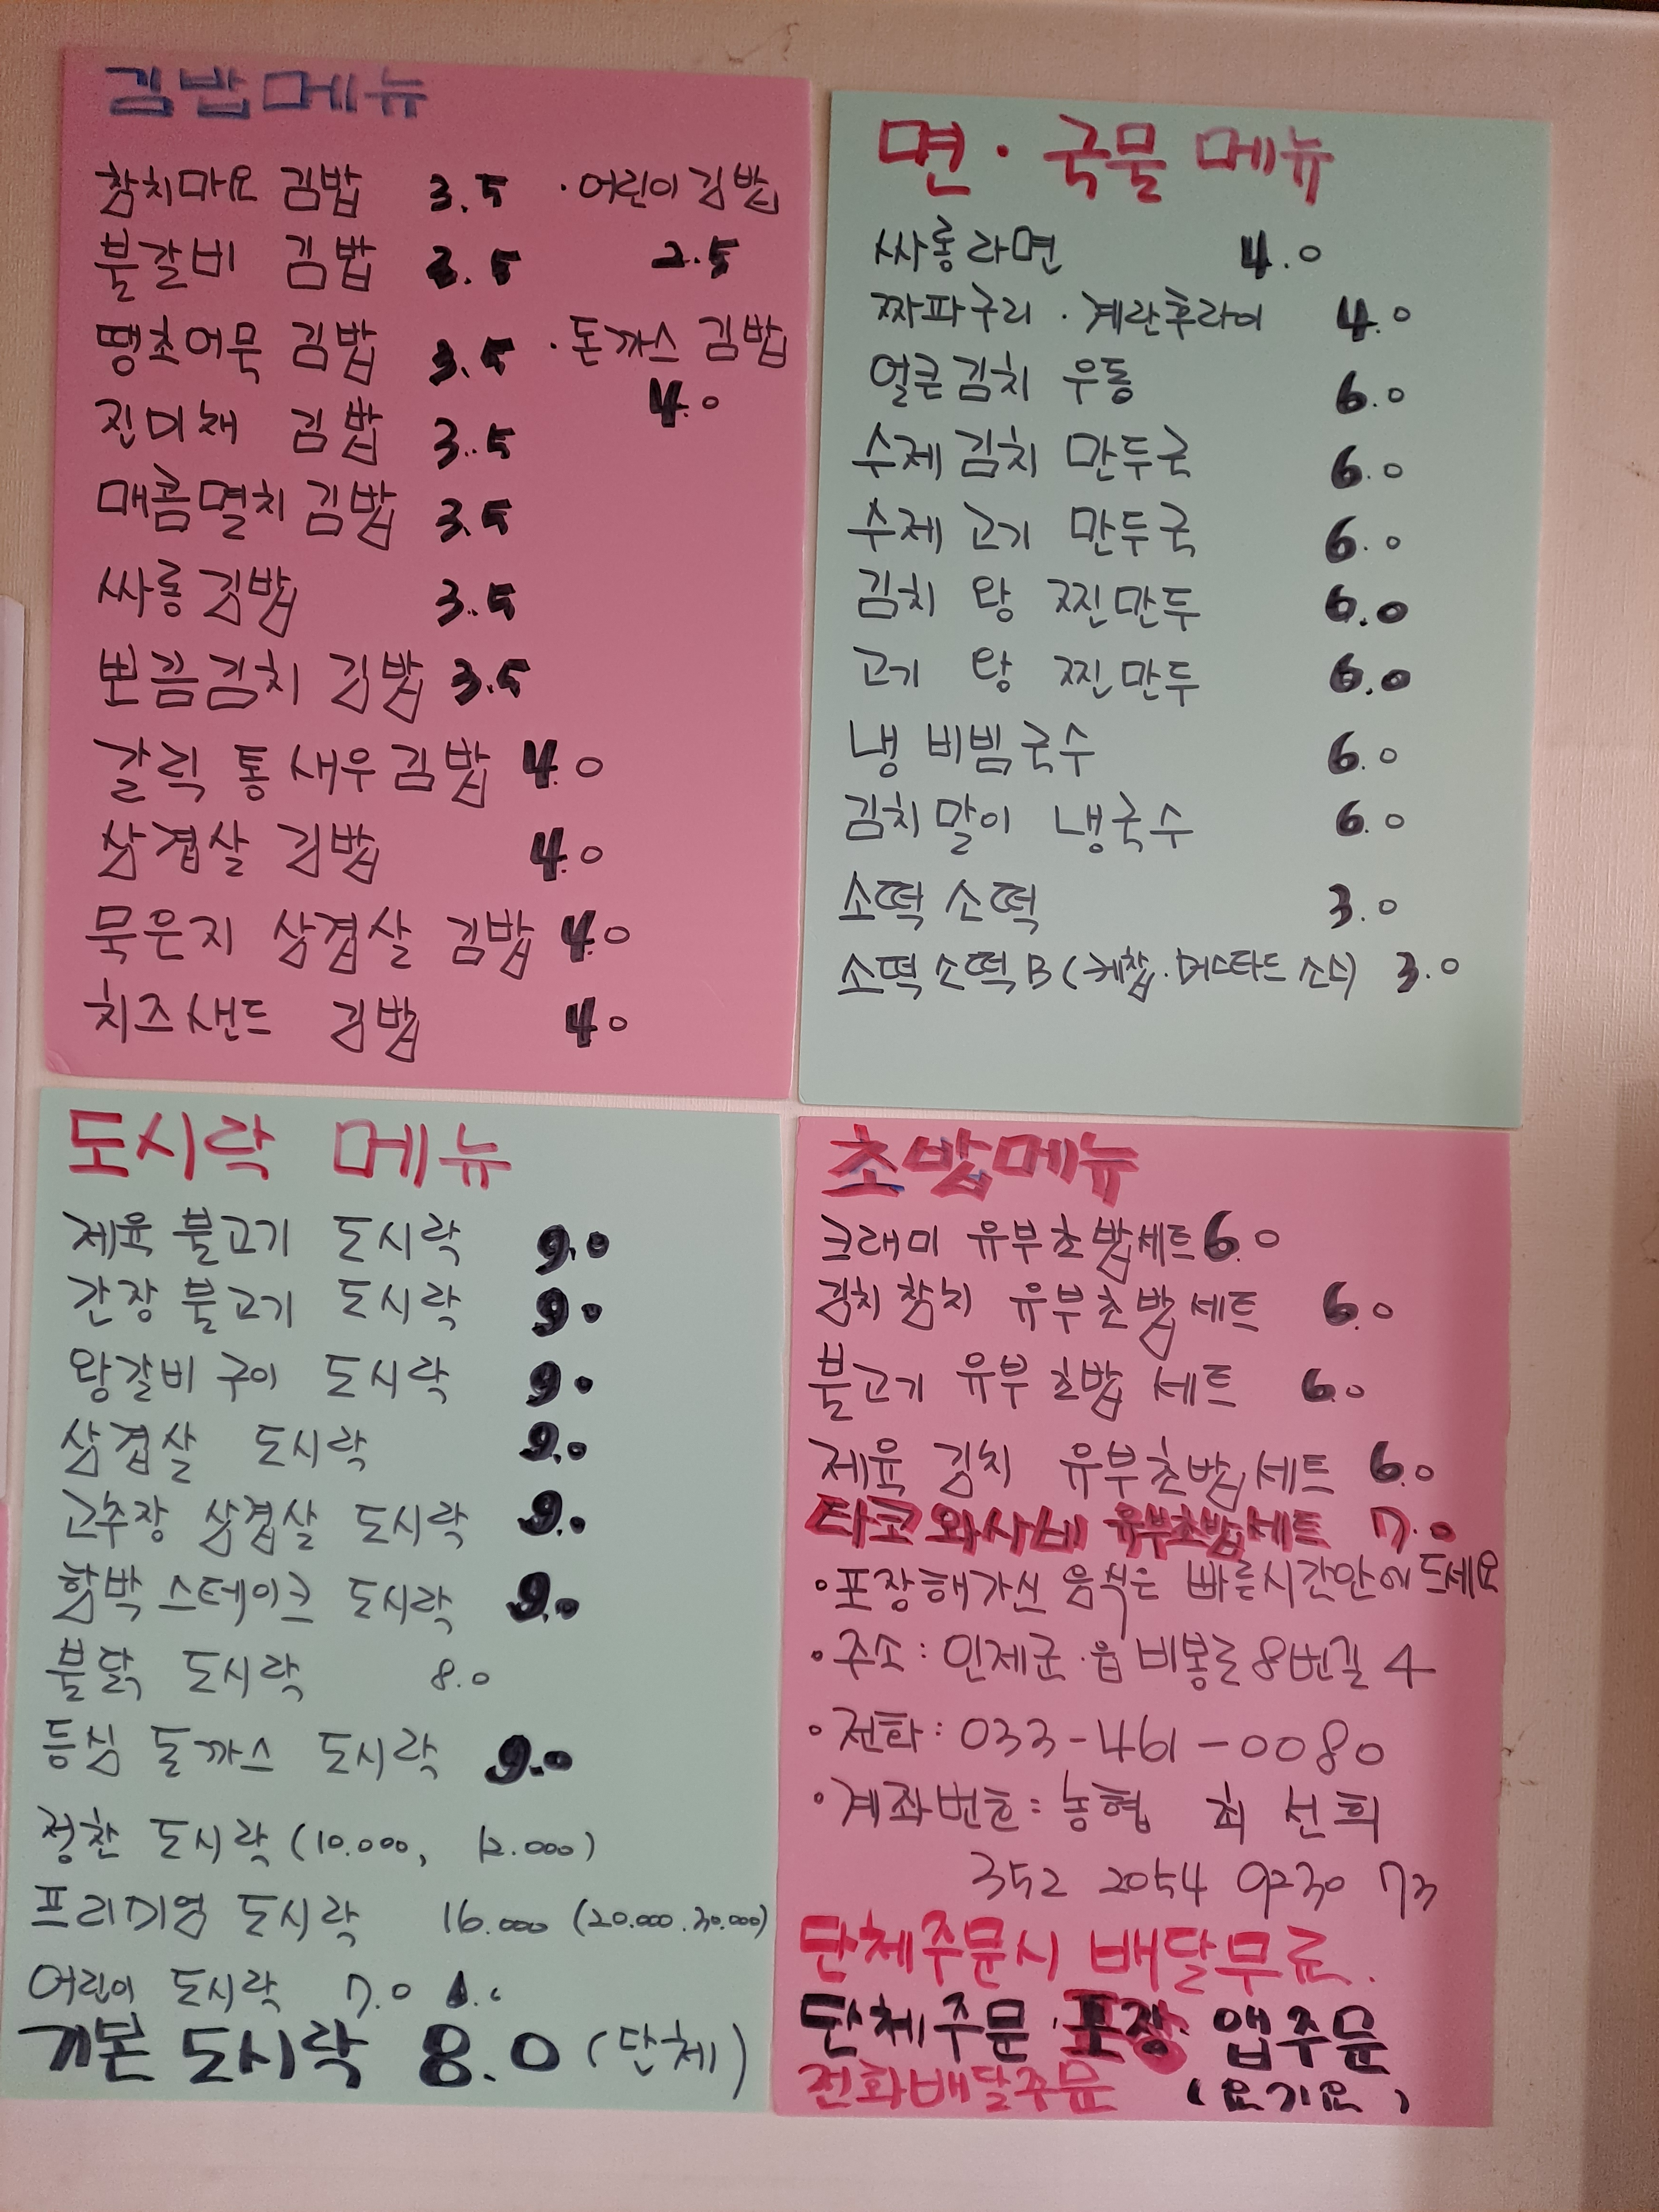 김밥메뉴
참치마요 김밥 3.5 · 어린이김밥
불갈비 김밥 3.5 2.5
땡초어묵 김밥 3.5 · 돈까스 김밥
진미채 김밥 3.5 4.0
매콤멸치 김밥 3.5
싸롱김밥 3.5
뽄끔김치 김밥 3.5
갈릭 통새우김밥 4.0
삼겹살 김밥 4.0
묵은지 삼겹살 김밥 4.0
치즈샌드 김밥 4.0
면·국물 메뉴
싸롱라면 4.0
짜파구리·계란후라이 4.0
얼큰김치 우동 6.0
수제김치 만두국 6.0
수제 고기 만두국 6.0
김치 왕 찐만두 6.0
고기 왕 찐만두 6.0
냉 비빔국수 6.0
김치말이 냉국수 6.0
소떡 소떡 3.0
소떡소떡B (케찹·머스타드 소스) 3.0
도시락 메뉴
제육 불고기 도시락 9.0
간장 불고기 도시락 9.0
왕갈비 구이 도시락 9.0
삼겹살 도시락 9.0
고추장 삼겹살 도시락 9.0
함박 스테이크 도시락 9.0
불닭 도시락 8.0
등심 돈까스 도시락 9.0
정찬 도시락 (10.000, 12.000)
프리미엄 도시락 16.000 (20.000.30.000)
어린이 도시락 7.0
기본 도시락 8.0 (단체)
초밥메뉴
크래미 유부초밥세트 6.0
김치참치 유부초밥세트 6.0
불고기 유부초밥 세트 6.0
제육 김치 유부초밥세트 6.0
타코와사비 유부초밥세트 7.0
·포장해가신 음식은 빠른시간안에 드세요
·주소: 인제군·읍 비봉로8번길 4
·전화: 033-461-0080
·계좌번호: 농협 최 선희
352 2054 9230 73
단체주문시 배달무료.
단체주문·포장· 앱주문
전화배달주문 (요기요)